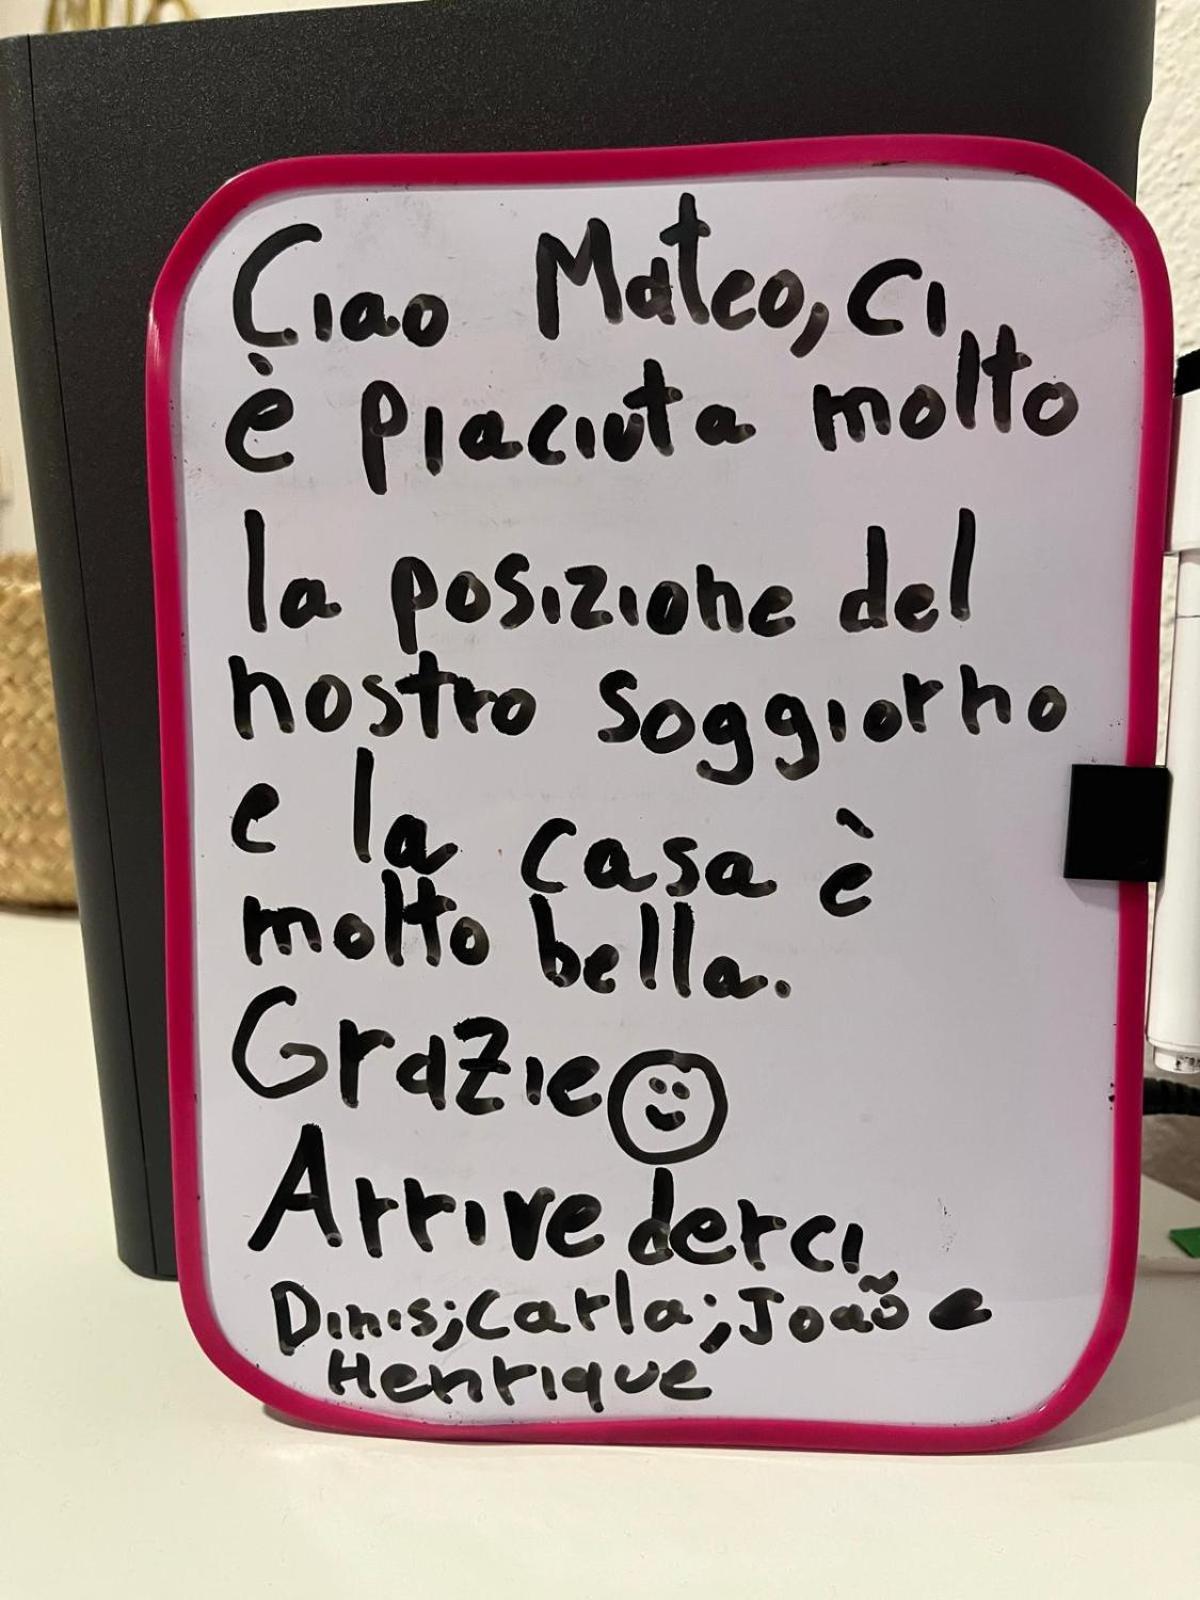 Ciao Mateo, ci
è piaciuta molto
la posizione del
nostro soggiorno
e la casa è
molto bella.
Grazie
Arrivederci
Dinis; Carla; João e
Henrique